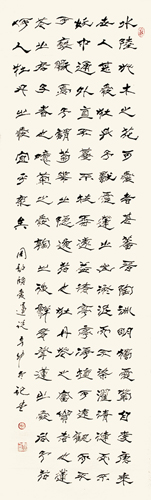 水陸草木之花可愛者甚蕃晉陶淵明獨愛菊自李唐來
世人甚愛牡丹予獨愛蓮之出淤泥而不染濯清漣而不
妖中通外直不蔓不枝香遠益清亭亭淨植可遠觀而不
可褻玩焉予謂菊花之隱逸者也牡丹花之富貴者也蓮
花之君子者也噫菊之愛陶後鮮有聞蓮之愛同予者
何人牡丹之愛宜乎眾矣 周敦頤愛蓮說